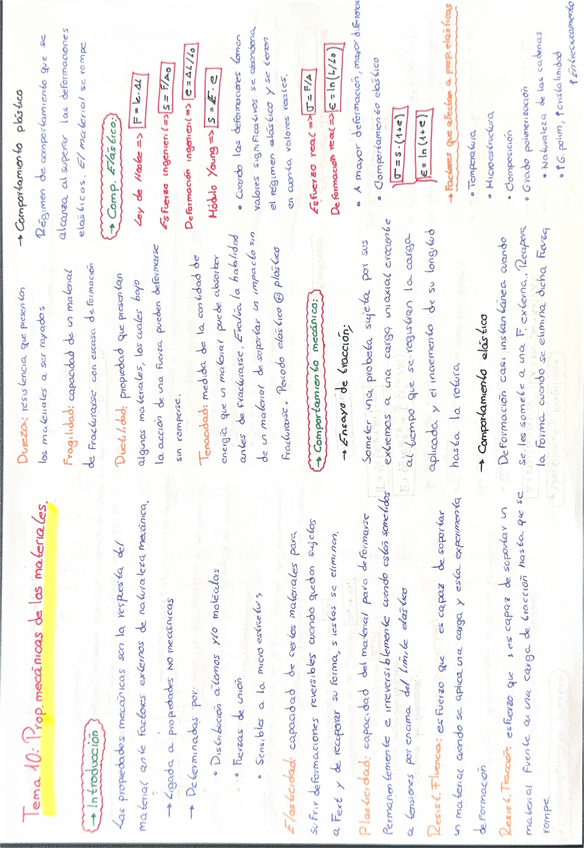 Tema 10: Prop. mecánicas de los materiales.
→ Introducción
Las propiedades mecánicas son la respuesta del
material ante factores externos de naturaleza mecánica.
→ Ligada a propiedades no mecánicas
→ Determinadas por:
• Distribución átomos y/o moléculas
• Fuerzas de unión
• Sensibles a la micro estructura
Elasticidad: capacidad de ciertos materiales para
sufrir deformaciones reversibles cuando quedan sujetos
a Fext y de recuperar su forma, si estas se eliminan.
Plasticidad: capacidad del material para deformarse
permanentemente e irreversiblemente cuando están sometidos
a tensiones por encima del límite elástico
Resist. Fluencia: esfuerzo que es capaz de soportar
un material cuando se aplica una carga y esta experimenta
deformación
Resist. Tracción: esfuerzo que es capaz de soportar un
material frente a una carga de tracción hasta que se
rompe.
Dureza: resistencia que presentan
los materiales a ser rayados
Fragilidad: capacidad de un material
de fracturarse con escasa deformación
Ductilidad: propiedad que presentan
algunos materiales, los cuales bajo
la acción de una fuerza pueden deformarse
sin romperse.
Tenacidad: medida de la cantidad de
energía que un material puede absorber
antes de fracturarse. Evalúa la habilidad
de un material de soportar un impacto sin
fracturarse. Periodo elástico @ plástico
→ Comportamiento mecánico:
→ Ensayo de tracción:
Someter una probeta sujeta por sus
extremos a una carga uniaxial creciente
al tiempo que se registran la carga
aplicada y el incremento de su longitud
hasta la rotura
→ Comportamiento elástico
Deformación casi instantánea cuando
se les somete a una F. externa. Recupera
la forma cuando se elimina dicha fuerza
→ Comportamiento plástico
Régimen de comportamiento que se
alcanza al superar las deformaciones
elásticas. El material se rompe
→ Comp. Elástico:
Ley de Hooke => F = k·ΔL
Esfuerzo ingenieril => S = F/A0
Deformación ingenieril => e = ΔL/L0
Módulo Young => S = E·e
• Cuando las deformaciones toman
valores significativos se abandona
el régimen elástico y se tienen
en cuenta valores reales.
Esfuerzo real => σ = F/A
Deformación real => ε = ln(L/L0)
• A mayor deformación, mayor diferencia
• Comportamiento elástico
σ = s·(1+e)
ε = ln(1+e)
→ Factores que afectan a prop. elásticas
• Temperatura
• Microestructura
• Composición
• Grado polimerización
• Naturaleza de las cadenas
• ↑G. polim, ↑Cristalinidad
↑Entrecruzamiento